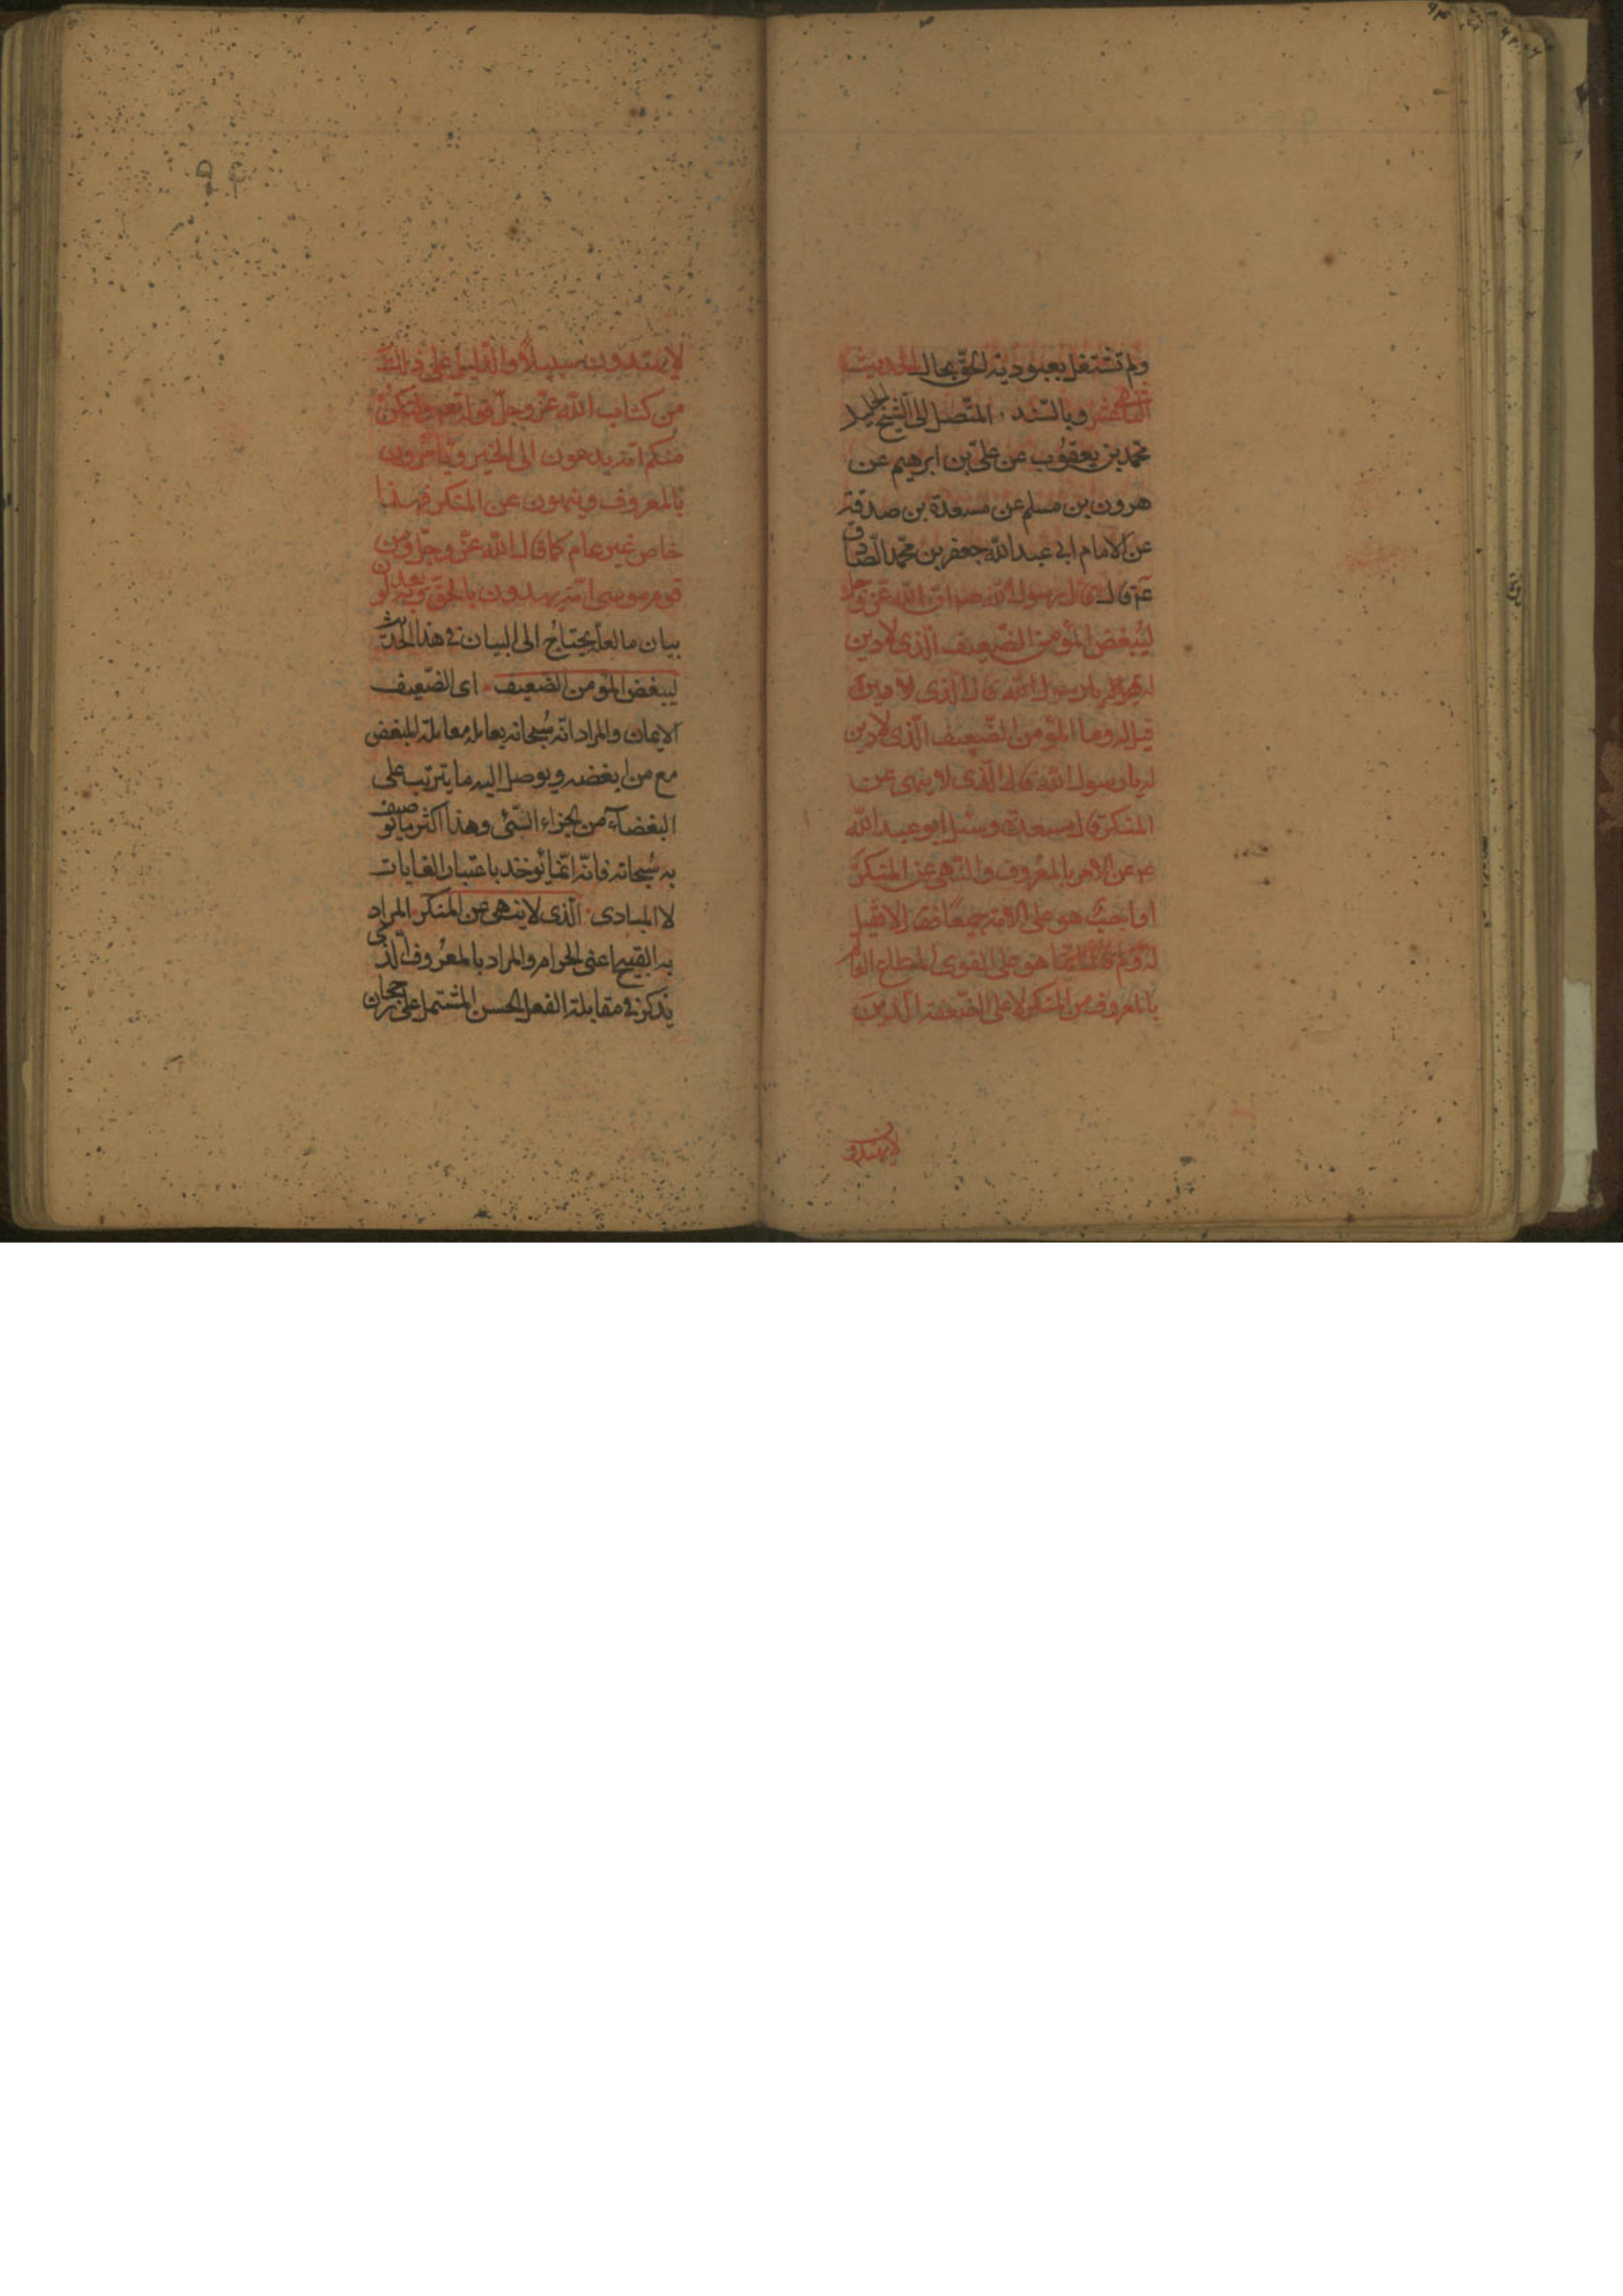 ولم تشتغل بعبوديته الحق بحال الحديث
وبالسند المتصل الى الشيخ الجليل
محمد بن يعقوب عن علي بن ابرهيم عن
هرون بن مسلم عن مسعدة بن صدقة
عن الامام ابي عبد الله جعفر بن محمد الصادق
ع قال قال رسول الله ص ان الله عز وجل
ليبغض المؤمن الضعيف الذي لا دين
له
قيل له وما المؤمن الضعيف الذي لا دين
له يا رسول الله قال الذي لا ينهى عن
المنكر قال مسعدة وسئل ابو عبد الله
ع عن الامر بالمعروف والنهي عن المنكر
اواجب هو على الامة جميعا فقال لا فقيل
له ولم قال انما هو على القوي المطاع العالم
بالمعروف من المنكر لا على الضعفة الذين
لا يهتدو
لا يهتدون سبيلا والدليل على ذلك
من كتاب الله عز وجل قوله تعالى ولتكن
منكم امة يدعون الى الخير ويأمرون
بالمعروف وينهون عن المنكر فهذا
خاص غير عام كما قال الله عز وجل ومن
قوم موسى امة يهدون بالحق وبه يعدلون
بيان ما لعله يحتاج الى البيان في هذا الحديث
ليبغض المؤمن الضعيف اى الضعيف
الايمان والمراد انه سبحانه يعامله معاملة المبغض
مع من ابغضه ويوصل اليه ما يترتب على
البغضاء من الجزاء السئ وهذا اكثر ما يوصف
به سبحانه فانه انما يؤخذ باعتبار الغايات
لا المبادى الذي لا ينهى عن المنكر المراد
به القبيح اعني الحرام والمراد بالمعروف الذي
يذكر في مقابلة الفعل الحسن المشتمل على رجحان